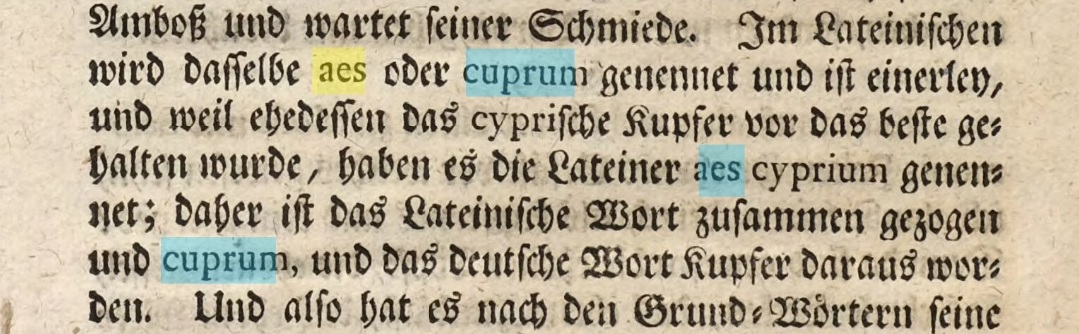 Amboß und wartet ſeiner Schmiede. Im Lateiniſchen
wird daſſelbe aes oder cuprum genennet und iſt einerley,
und weil ehedeſſen das cypriſche Kupfer vor das beſte ge⸗
halten wurde, haben es die Lateiner aes cyprium genen⸗
net; daher iſt das Lateiniſche Wort zuſammen gezogen
und cuprum, und das deutſche Wort Kupfer daraus wor⸗
den. Und alſo hat es nach den Grund⸗Woͤrtern ſeine